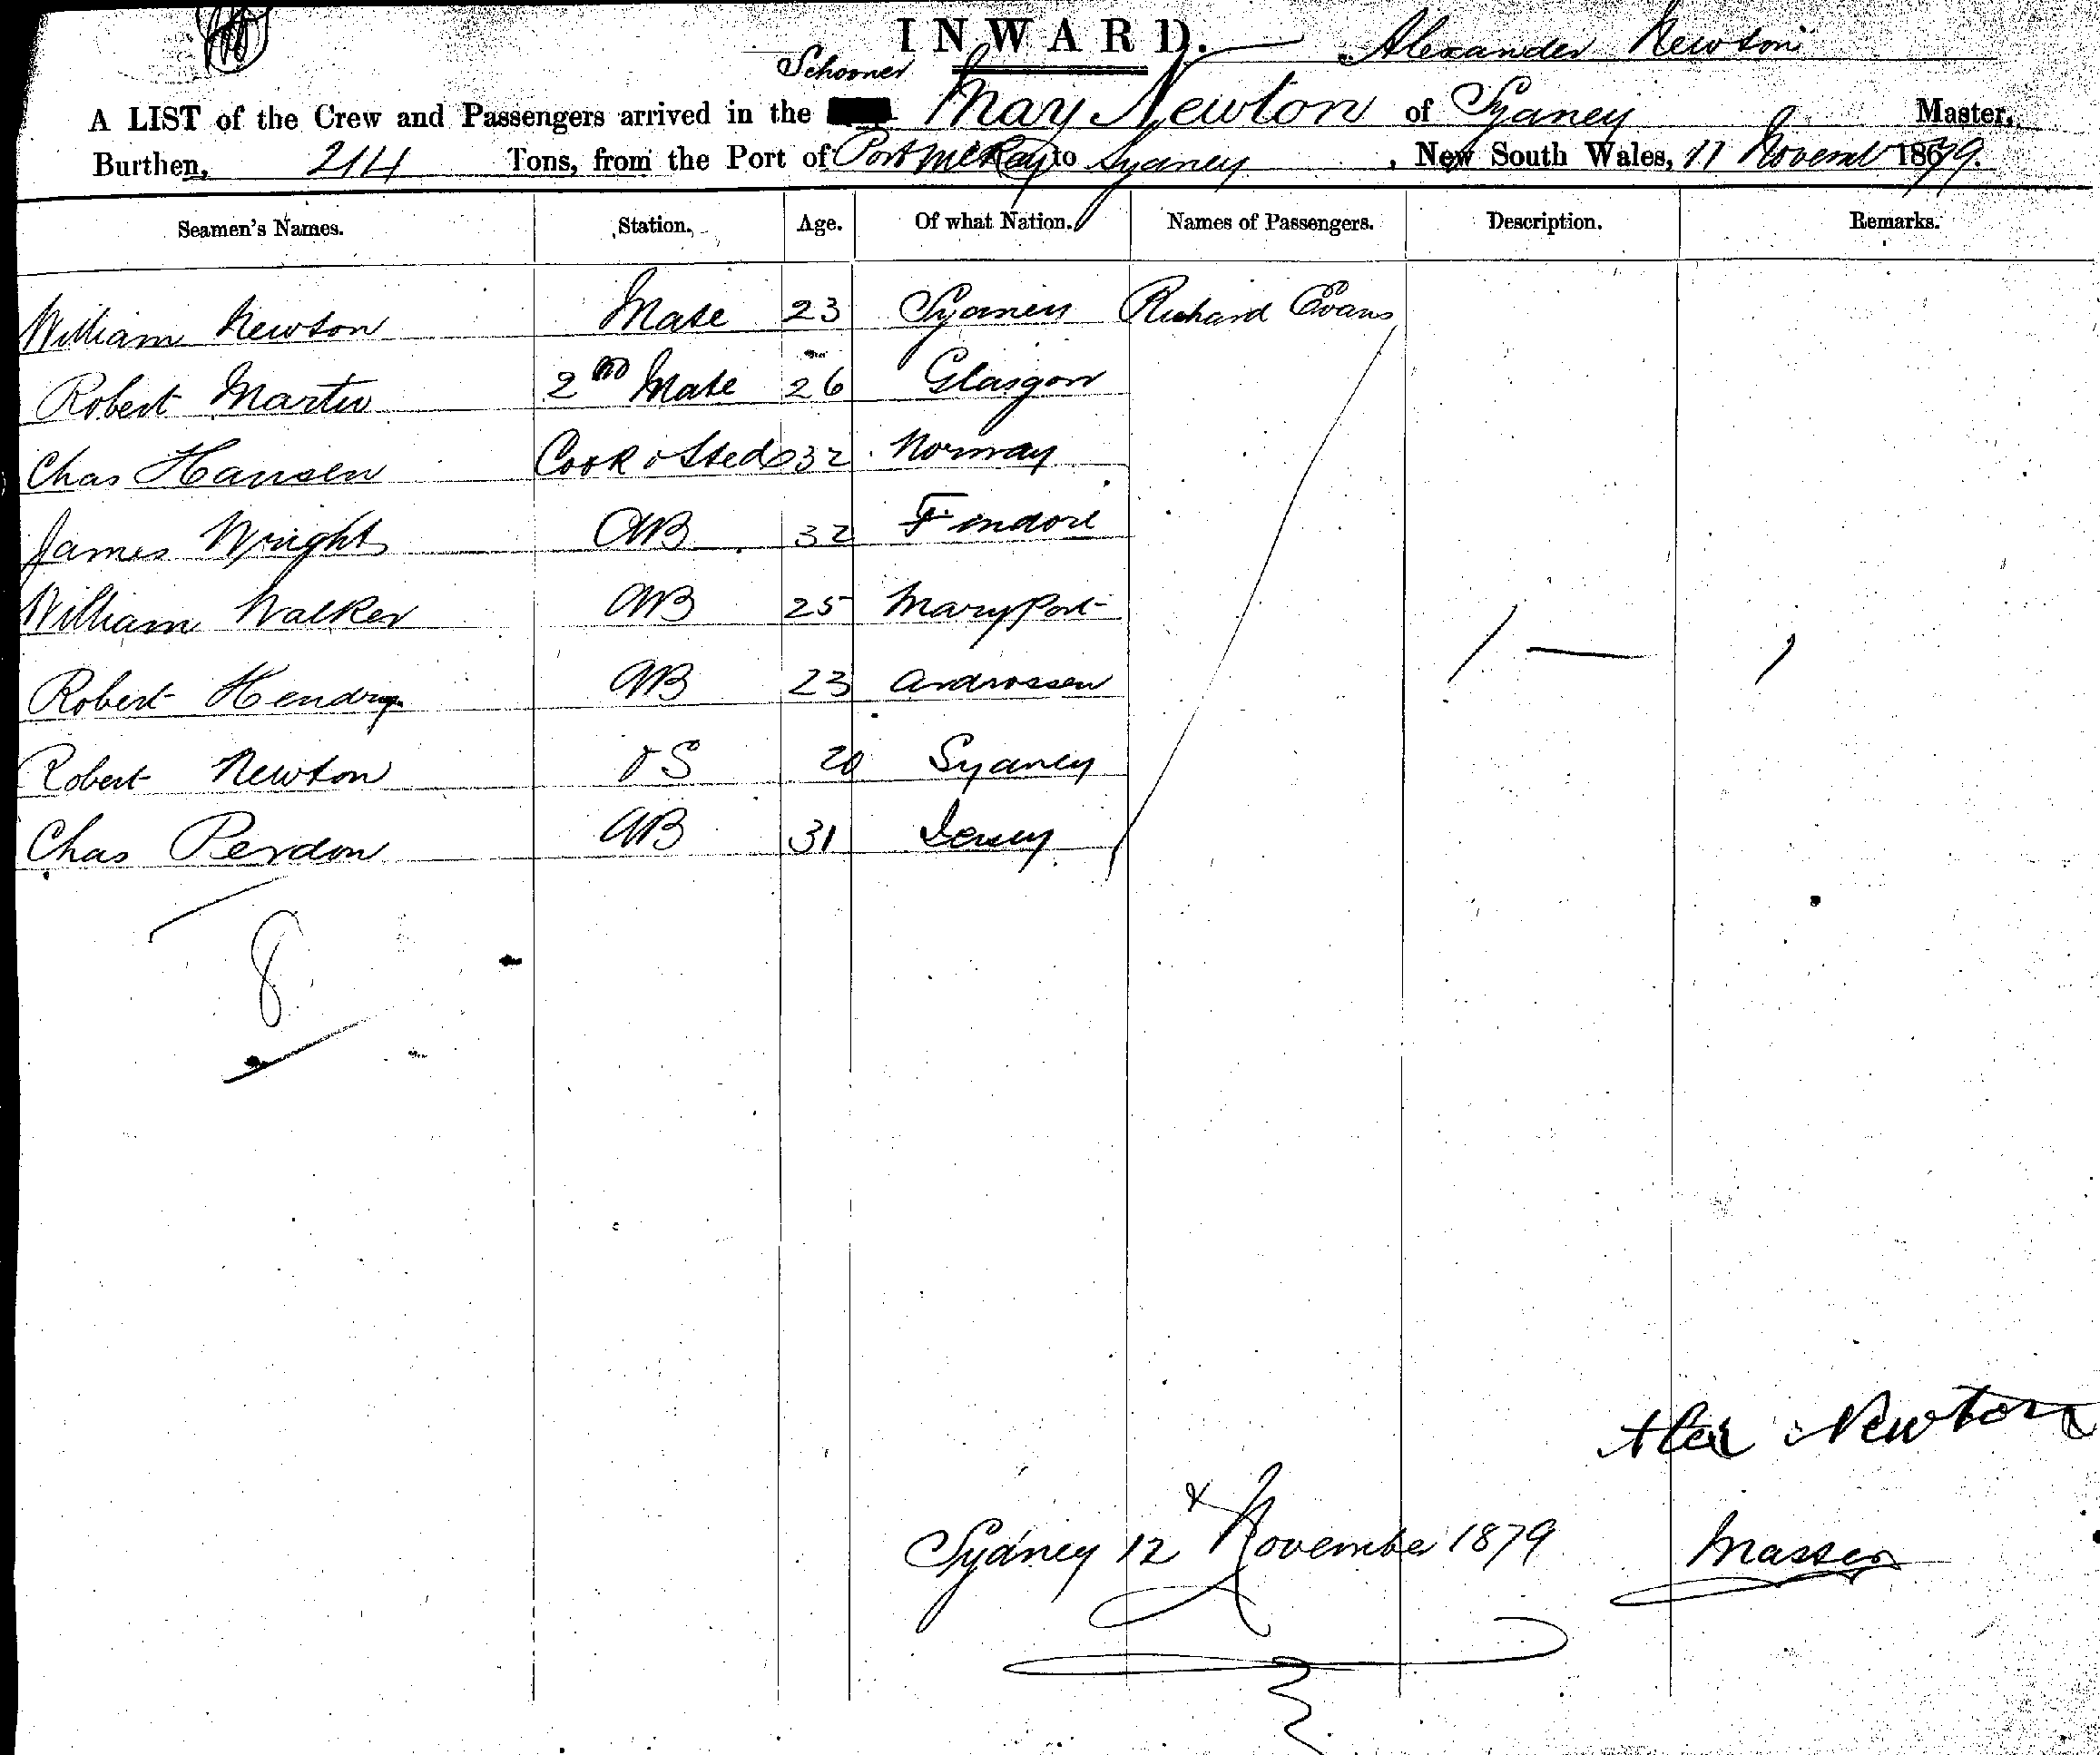 INWARD.
Schooner Alexander Newton
A LIST of the Crew and Passengers arrived in the May Newton of Sydney Master,
Burthen, 214 Tons, from the Port of Port McKay to Sydney, New South Wales, 11 Novemb 1879.
Seamen's Names. Station. Age. Of what Nation. Names of Passengers. Description. Remarks.
William Newton Mate 23 Sydney Richard Evans
Robert Martin 2nd Mate 26 Glasgow
Chas Hansen Cook & Sted 32 Norway
James Wright AB 32
William Walker AB 25 Maryport
Robert Hendry AB 23 Androssen
Robert Newton OS 20 Sydney
Chas Perdon AB 31 Jersey
8
Alex Newton
Sydney 12 November 1879 Master